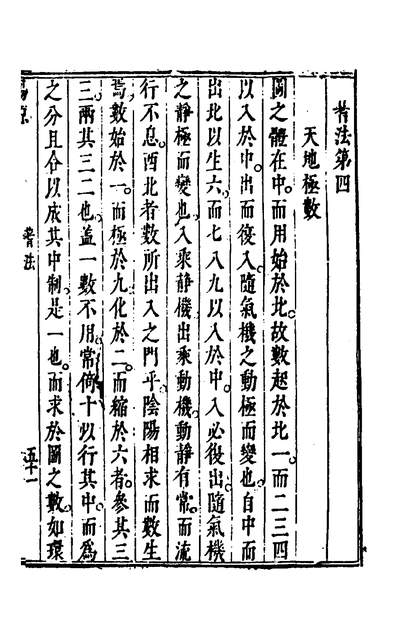 蓍法第四
天地極數
圖之體在中。而用始於北。故數起於北一。而二三四
以入於中。出而復入。隨氣機之動極而變也。自中而
出北以生六。而七八九以入於中。入必復出。隨氣機
之靜極而變也。入乘靜機。出乘動機。動靜有常。而流
行不息。西北者數所出入之門乎。陰陽相求而數生
焉。數始於一。而極於九。化於二。而縮於六者。參其三
三。兩其三二也。蓋一數不用。常倚十以行其中。而爲
之分且合以成其中制。是一也。而求於圖之數。如環
易原
蓍法
五十一